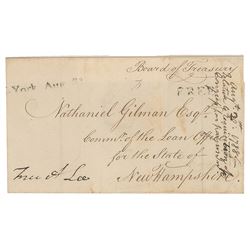 Board of Treasury
York Aug
FREE
Nathaniel Gilman Esqr.
Commr. of the Loan Office
for the State of
New Hampshire
Free A Lee